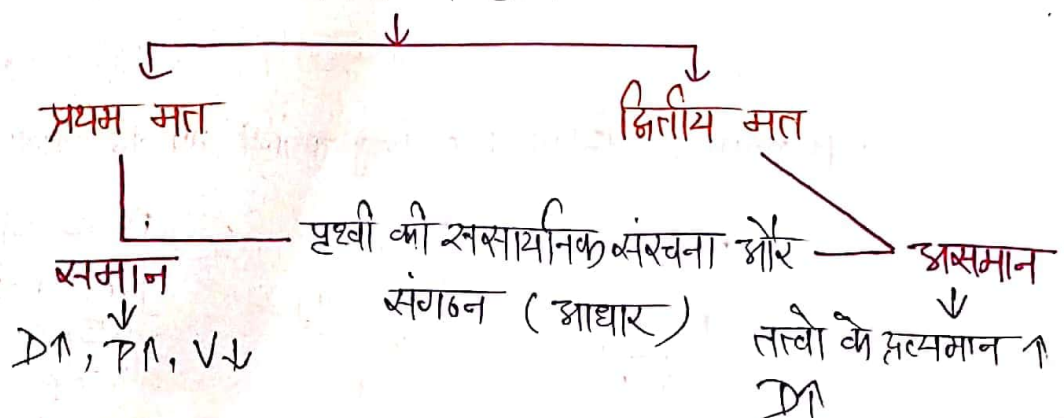 प्रथम मत
द्वितीय मत
पृथ्वी की रासायनिक संरचना और
संगठन (आधार)
समान
D↑, P↑, V↓
असमान
तत्वो के द्रव्यमान ↑
D↑